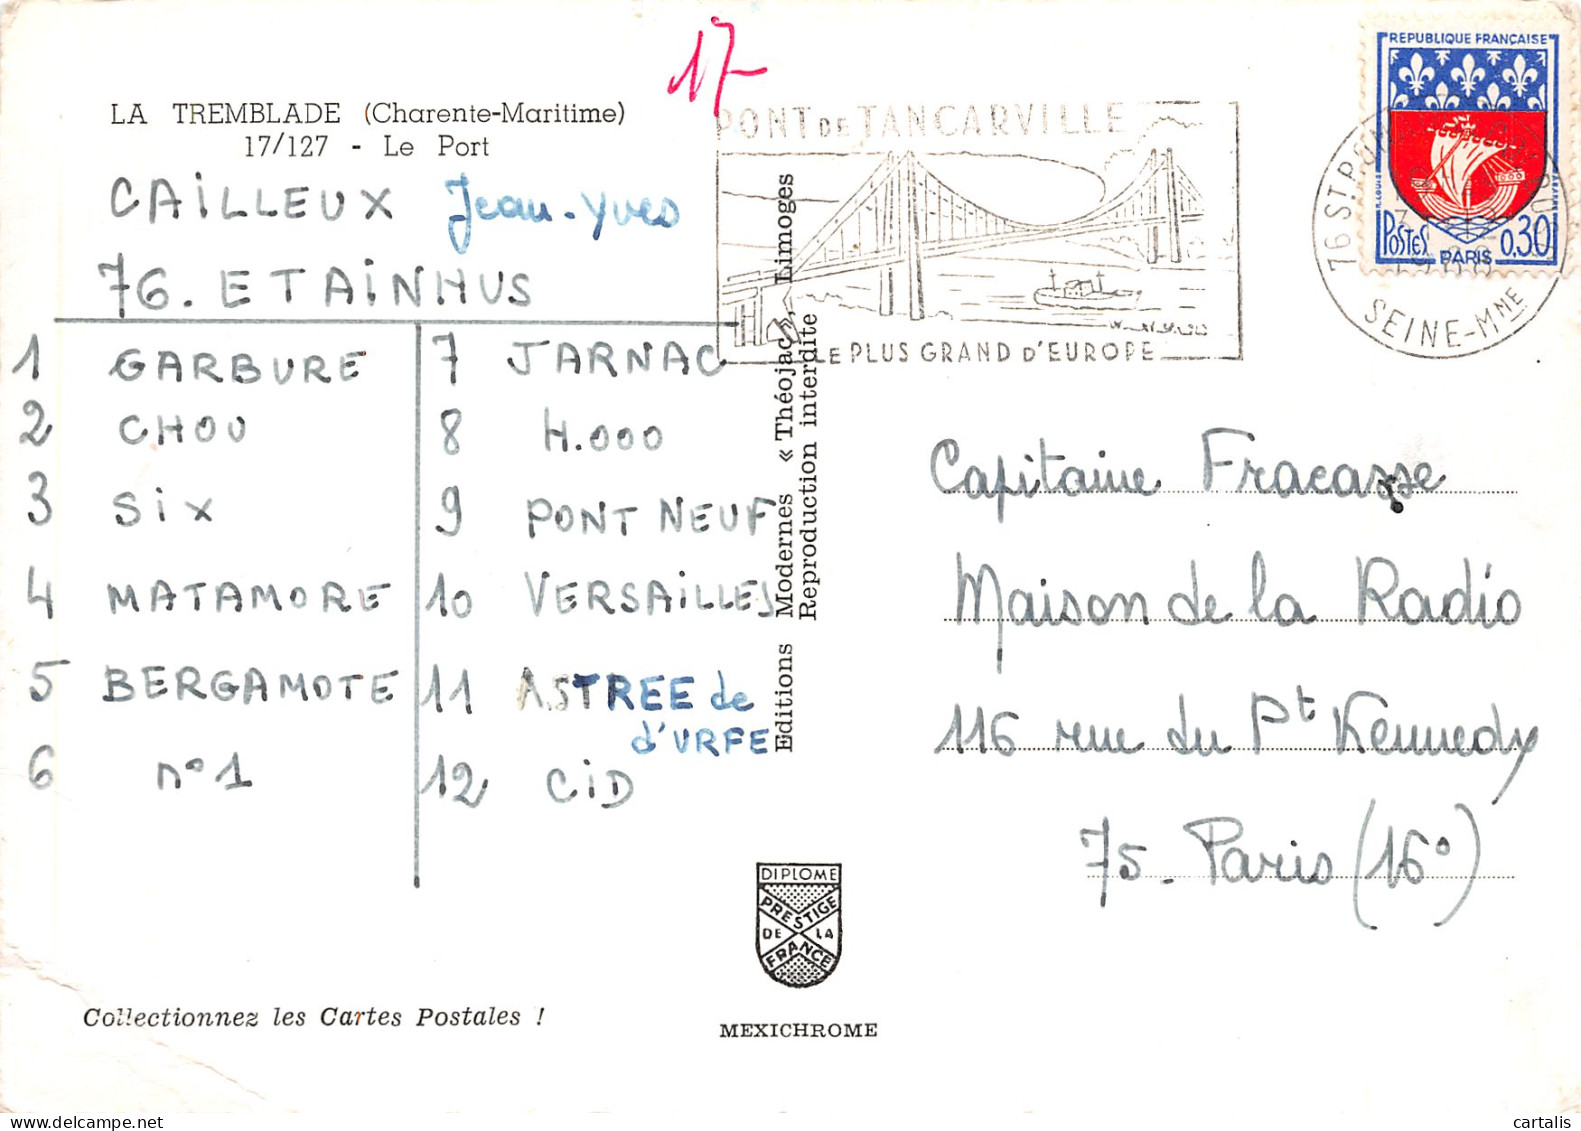 17
LA TREMBLADE (Charente-Maritime)
17/127 - Le Port
CAILLEUX Jean-Yves
76. ETAINHUS
1 GARBURE
2 CHOU
3 SIX
4 MATAMORE
5 BERGAMOTE
6 n° 1
7 JARNAC
8 H.000
9 PONT NEUF
10 VERSAILLES
11 ASTREE de
d'URFE
12 CID
Collectionnez les Cartes Postales !
Editions Modernes « Théojac », Limoges
Reproduction interdite
DIPLOME
PRESTIGE
DE LA
FRANCE
MEXICHROME
PONT DE TANCARVILLE
LE PLUS GRAND D'EUROPE
REPUBLIQUE FRANÇAISE
POSTES 0,30
PARIS
76 ST
SEINE-MME
Capitaine Fracasse
Maison de la Radio
116 rue du Pt Kennedy
75. Paris (16°)
delcampe.net
cartalis